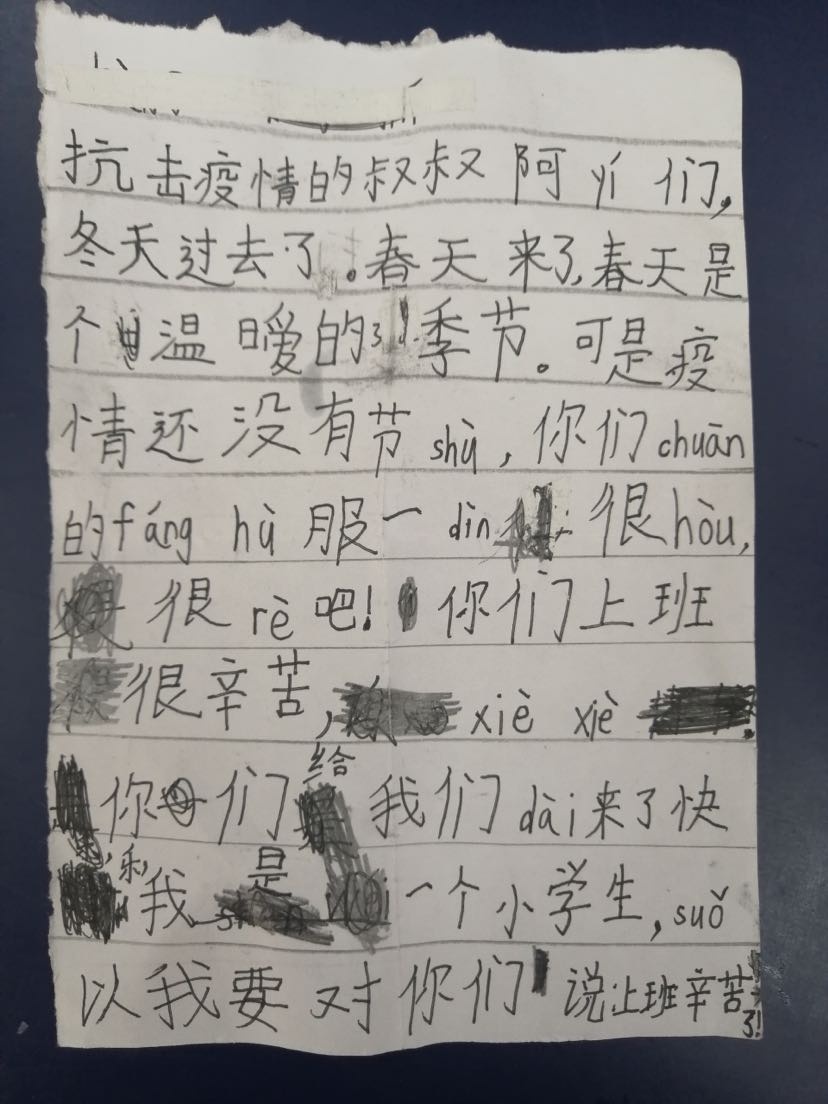 抗击疫情的叔叔阿yí们,
冬天过去了。春天来了,春天是
个温暖的季节。可是疫
情还没有节shù,你们chuān
的fáng hù服一dìn很hòu,
很rè吧!你们上班
很辛苦,xiè xiè
你们给我们dài来了快
乐,我是一个小学生,suǒ
以我要对你们说上班辛苦
了!